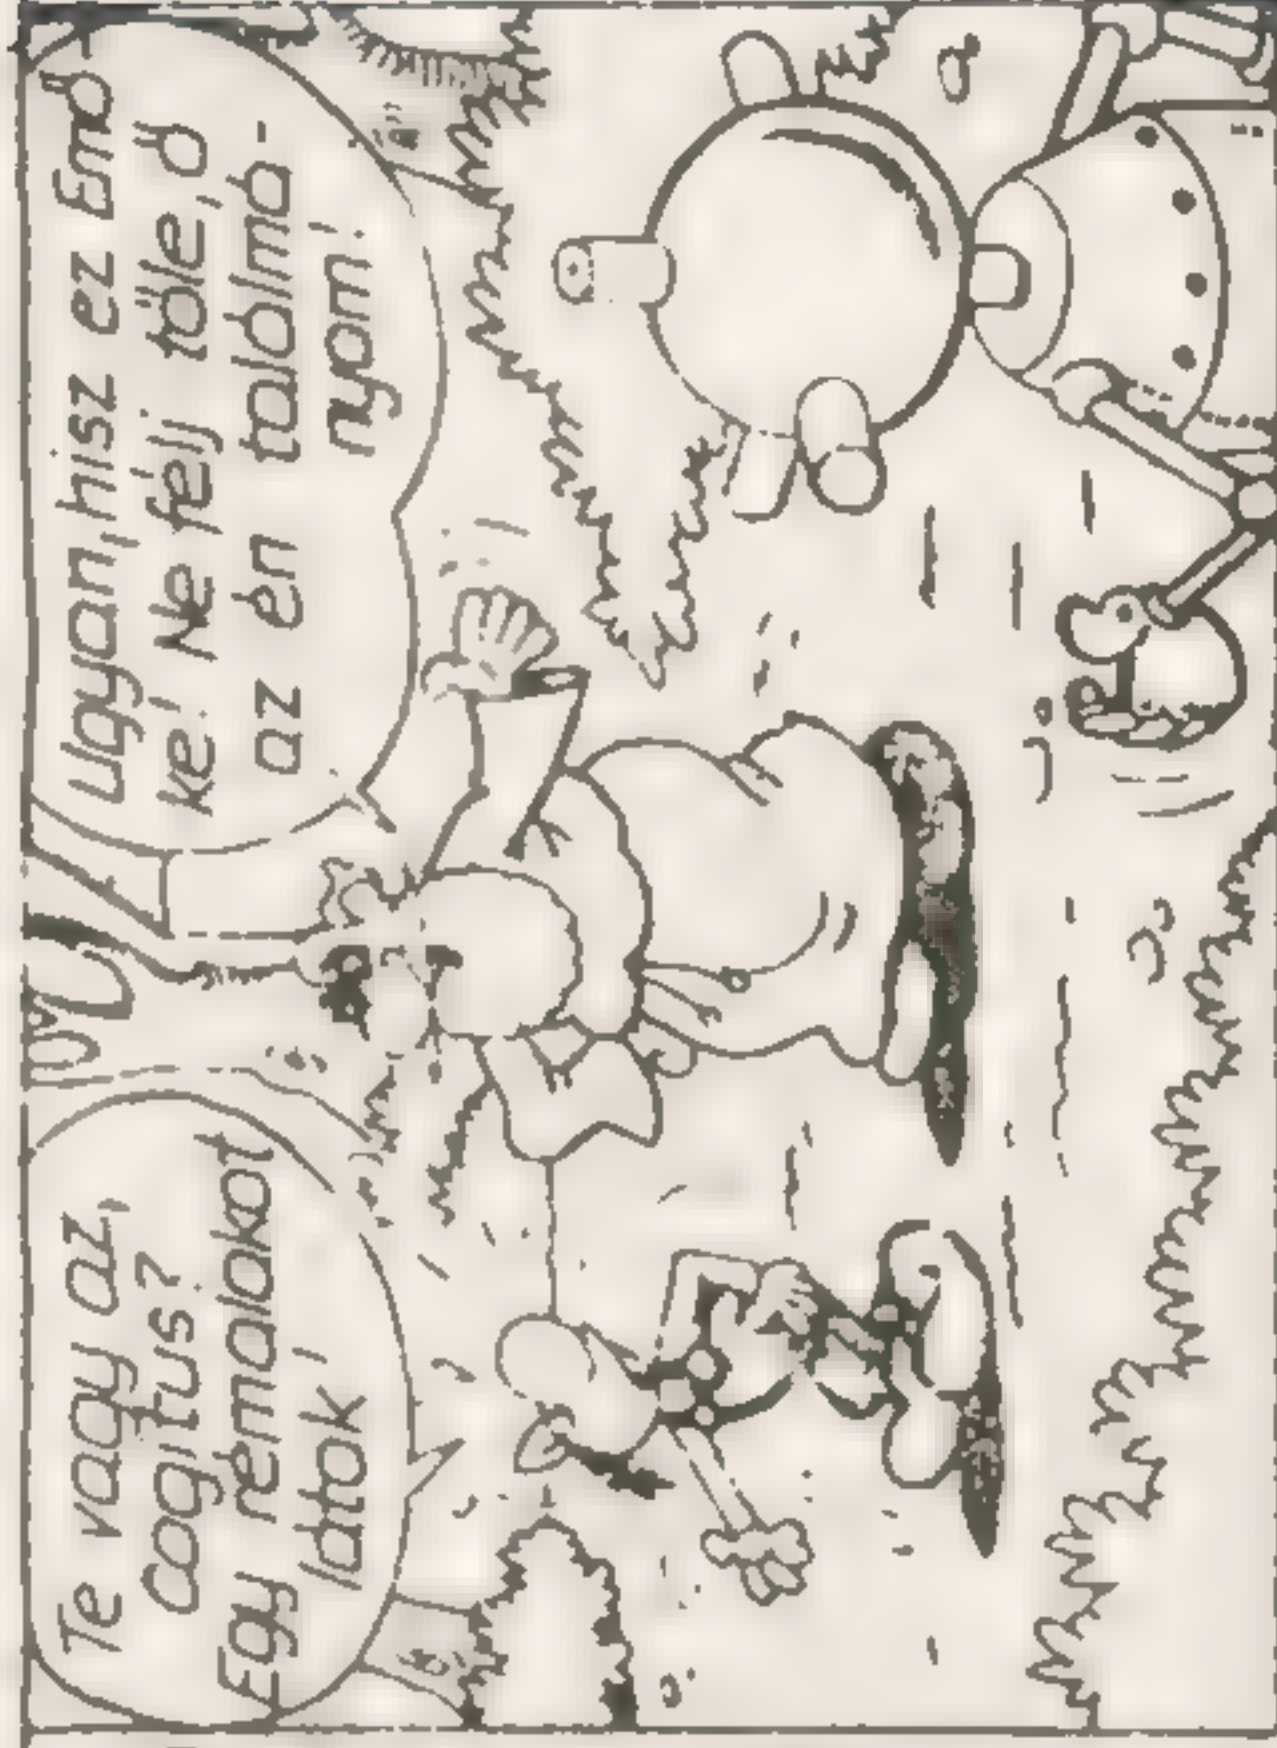 Te vagy az,
Cogitus?
Egy rémalakot
látok!
Ugyan, hisz ez Emő-
ke! Ne félj tőle, ő
az én találmá-
nyom!